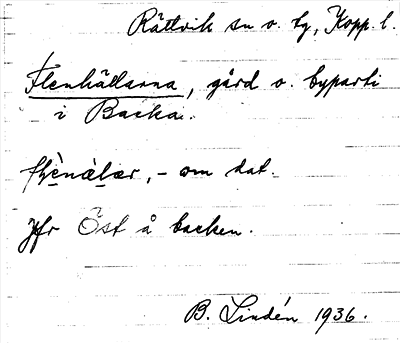 Rättvik sn o. tg, Kopp. l.
Flenhällarna, gård o. byparti
i Backa.
om dat.
Jfr Öst å backen.
B. Lindén 1936.